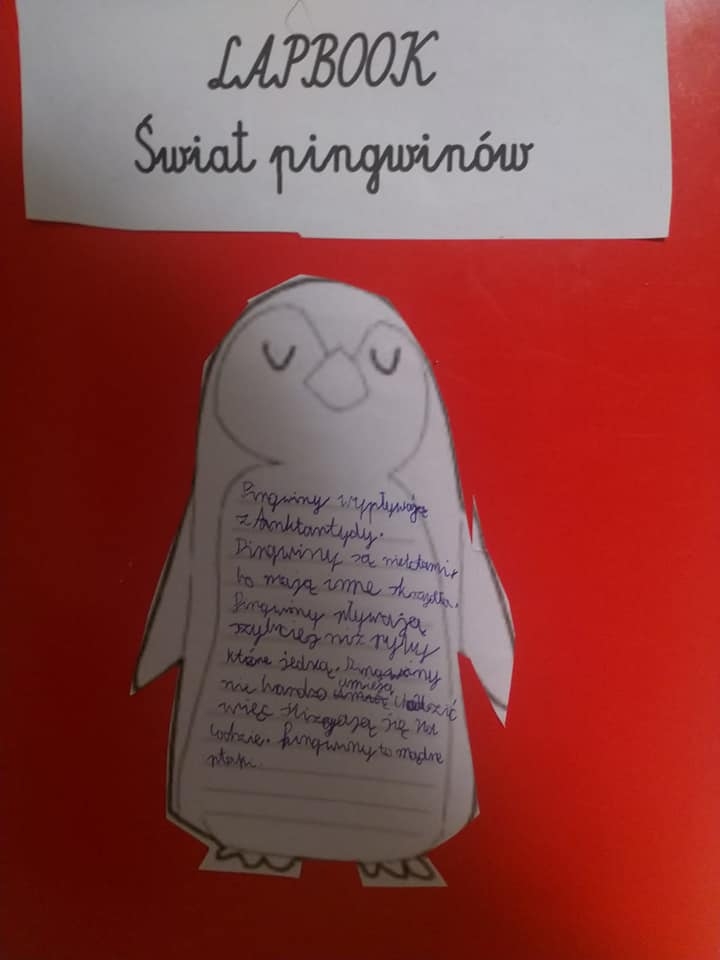 LAPBOOK
Świat pingwinów
Pingwiny wypływają
z Anktantydy.
Pingwiny są nielotami,
bo mają inne skrzydła.
Pingwiny pływają
szybciej niż ryby
które jedzą. Pingwiny
umieją
nie bardzo chodzić
więc ślizgają się na
lodzie. Pingwiny to mądre
ptaki.